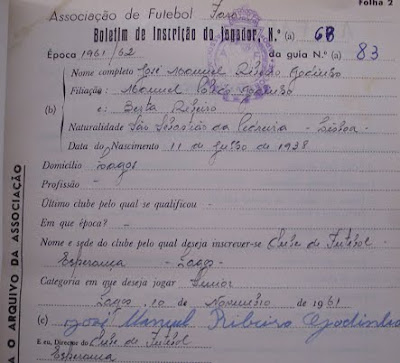 Folha 2
Associação de Futebol Faro
Boletim de Inscrição do jogador, N.º (a) 68
Época 1961/62 da guia N.º (a) 83
Nome completo José Manuel Ribeiro Godinho
Filiação: Manuel Godinho
(b) e: Berta Ribeiro
Naturalidade São Sebastião da Pedreira - Lisboa -
Data do Nascimento 11 de Julho de 1938
Domicílio Lagos
Profissão -
Último clube pelo qual se qualificou -
Em que época? -
Nome e sede do clube pelo qual deseja inscrever-se Clube de Futebol -
Esperança - Lagos -
Categoria em que deseja jogar Junior
Lagos 10 de Novembro de 1961
(c) José Manuel Ribeiro Godinho
E eu, Director do Clube de Futebol
Esperança
A O ARQUIVO DA ASSOCIAÇÃO